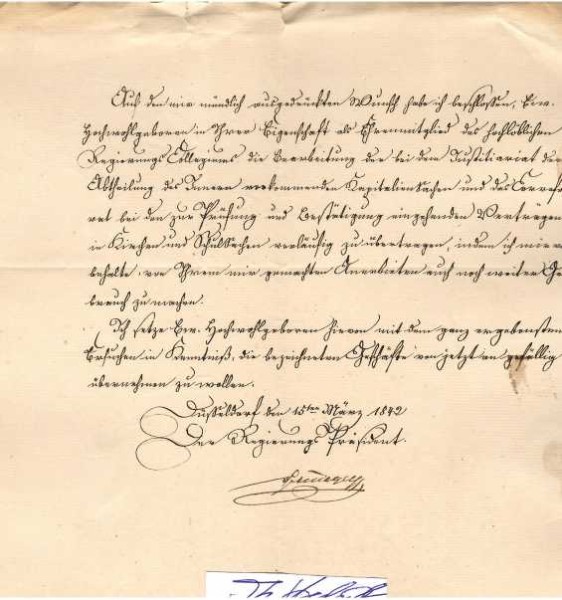 Auf den mir mündlich ausgedrückten Wunsch habe ich beschlossen, Ew.
Hochwohlgeboren in Ihrer Eigenschaft als Ehrenmitglied des hochlöblichen
Regierungs Collegiums die Bearbeitung der bei dem Justitiariat der
Abtheilung des Innern vorkommenden Kapitalien Sachen und das Correfe
rat bei den zur Prüfung und Bestätigung eingehenden Verträgen
in Kirchen und Schulsachen vorläufig zu übertragen, indem ich mir v
behalte von Ihrem mir gemachten Anerbieten auch noch weiter Ge
brauch zu machen.
Ich setze Ew. Hochwohlgeboren hievon mit dem ganz ergebensten
Ersuchen in Kenntniß, die bezeichneten Geschäfte von jetzt an gefällig
übernehmen zu wollen.
Düsseldorf den 15ten März 1842
Der Regierungs Präsident.